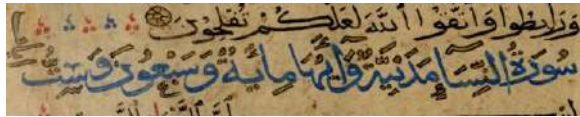 وَرَابِطُوا وَاتَّقُوا اللَّهَ لَعَلَّكُمْ تُفْلِحُونَ
سُورَةُ النِّسَا مَدَنِيَّةٌ وَآيُهَا مِائَةٌ وَسَبْعُونَ وَسِتٌّ